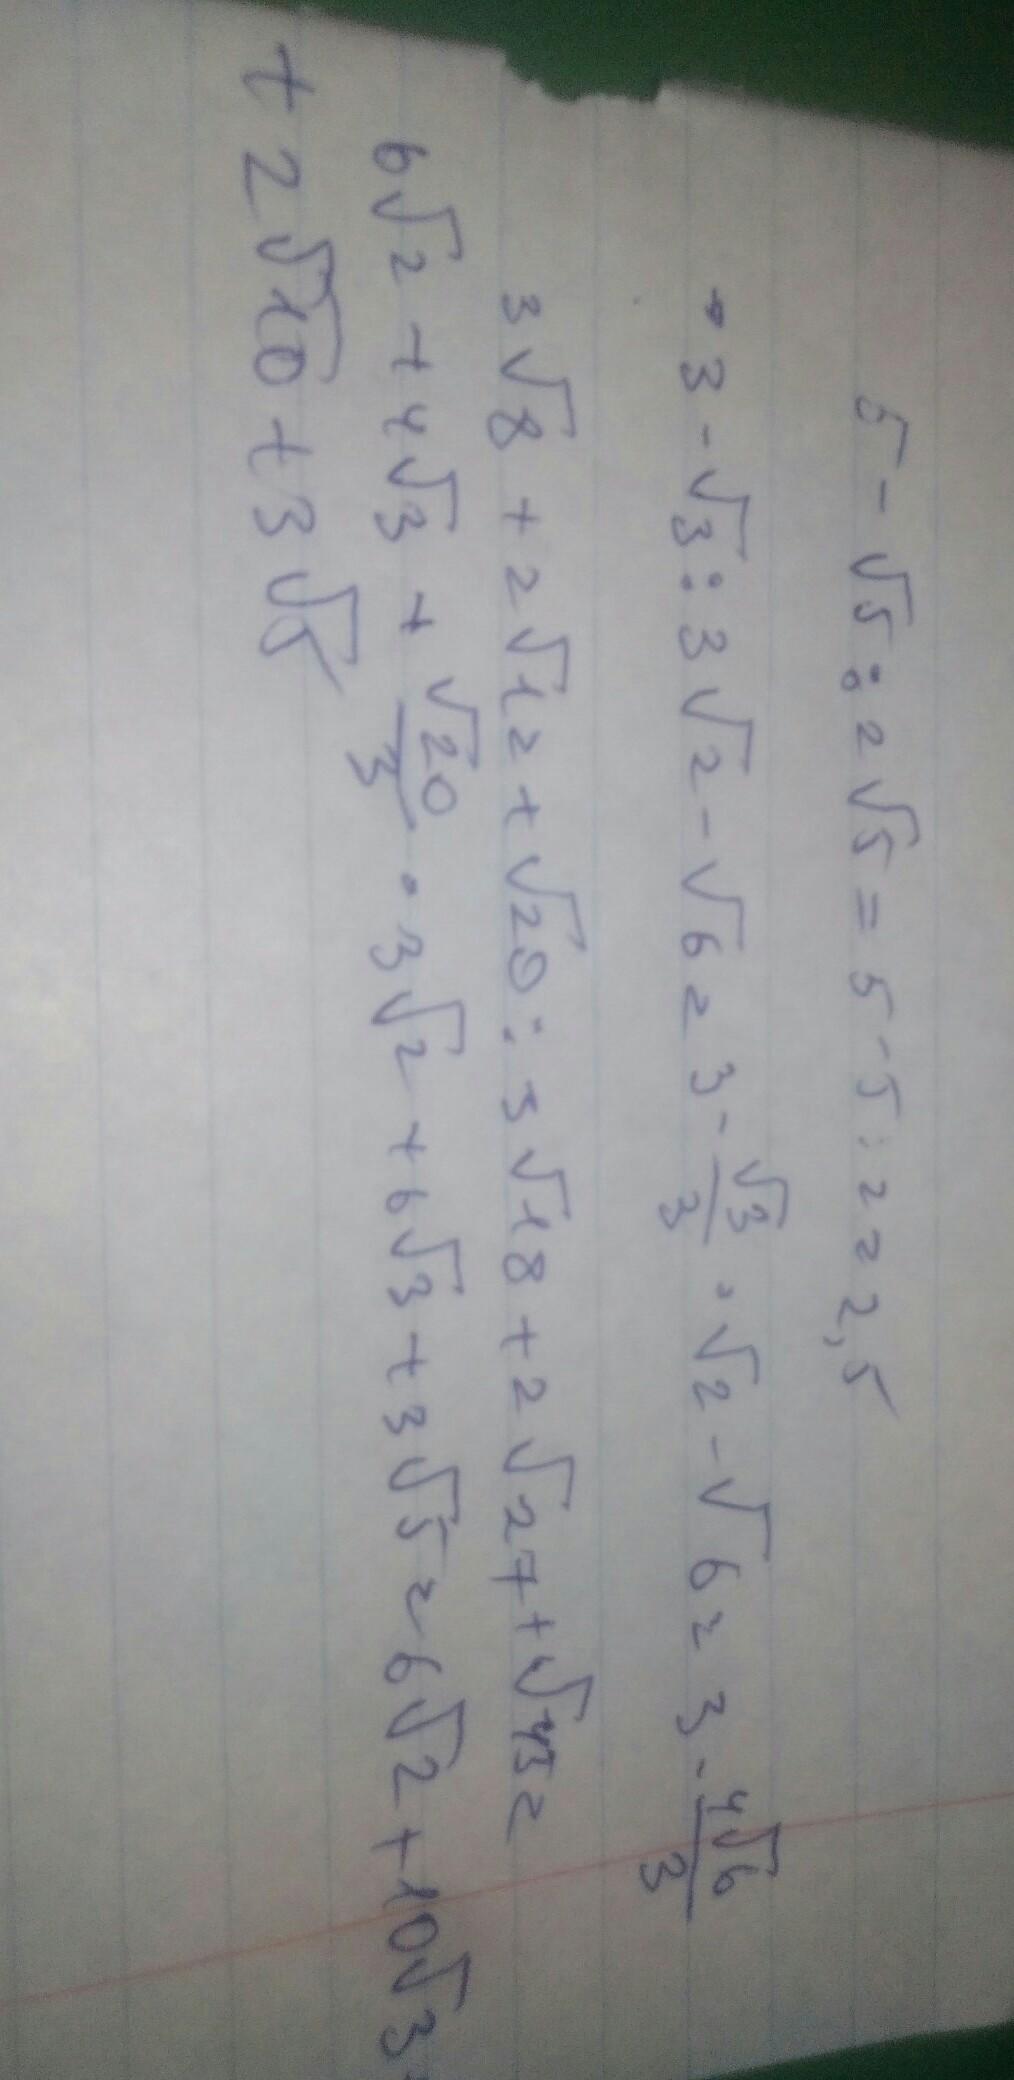 5 - √5 : 2√5 = 5 - 5 : 2 = 2,5
• 3 - √3 : 3√2 - √6 = 3 - √3/3 · √2 - √6 = 3 - 4√6/3
3√8 + 2√12 + √20 : 3√18 + 2√27 + √45 =
6√2 + 4√3 + √20/3 · 3√2 + 6√3 + 3√5 = 6√2 + 10√3
+ 2√10 + 3√5